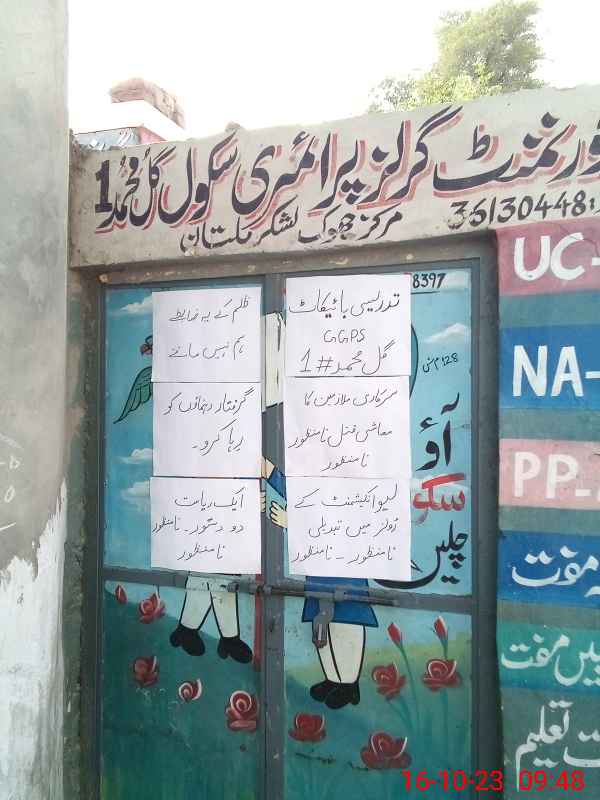 ورنمنٹ گرلز پرائمری سکول گل محمد 1
مرکز جھوک لشکر ملتان
36130448
8397
تدریسی بائیکاٹ
GGPS
گل محمد # 1
سرکاری ملازمین کا
معاشی قتل نامنظور
نامنظور
لیو انکیشمنٹ کے
رولز میں تبدیلی
نامنظور - نامنظور
ظلم کے یہ ضابطے
ہم نہیں مانتے
گرفتار رہنماؤں کو
رہا کرو۔
ایک ریاست
دو دستور - نامنظور
نامنظور
آؤ
سکو
چلیں
UC-
NA-
PP-
مفت
یں مفت
ت تعلیم
16-10-23 09:48